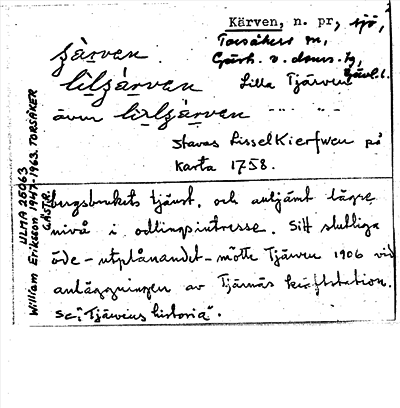 Kärven, n. pr, sjö,
Torsåkers sn,
Gästr. v. doms. hg,
Gävl. l.
järven
lilsjärven Lilla Tjärven
även lislsjärven " "
stavas Lissel Kierfwen på
karta 1758.
bergsbrukets tjänst, och antjänt lägre
nivå i odlingsintresse. Sitt slutliga
öde - utplånandet - mötte Tjärven 1906 vid
anläggningen av Tjärnäs kraftstation.
Se "Tjärvens historia".
ULMA 26063
William Eriksson 1947-1963. TORSÅKER
GÄSTR.